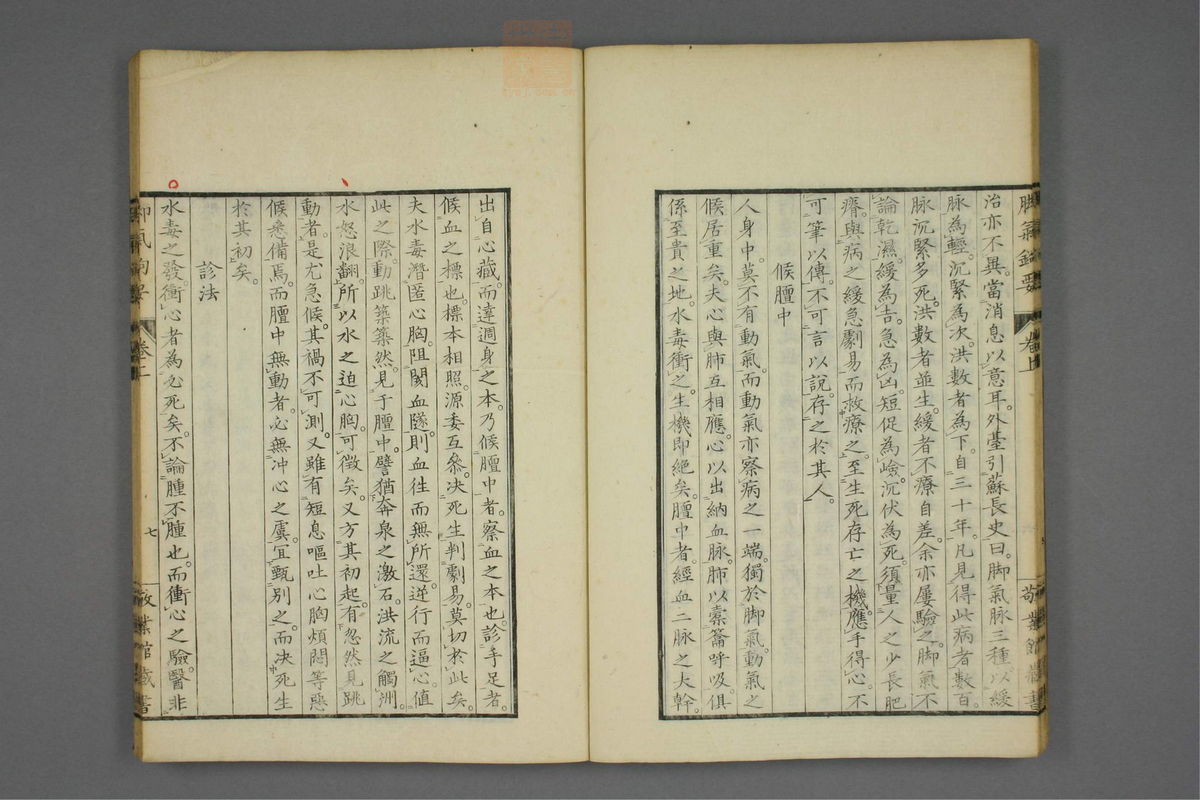 治亦不異。當消息以意耳。外臺引蘇長史曰。脚氣脉三種。以緩
脉為輕。沉緊為次。洪數者為下。自三十年。凡見得此病者數百。
脉沉緊多死。洪數者並生。緩者不療自差。余亦屢驗之。脚氣不
論乾濕。緩為吉。急為凶。短促為嶮。沉伏為死。須量人之少長肥
瘠。與病之緩急劇易。而救療之。至生死存亡之機。應手得心。不
可筆以傳。不可言以說。存之於其人。
候膻中
人身中。莫不有動氣。而動氣亦察病之一端。獨於脚氣。動氣之
候居重矣。夫心與肺互相應。心以出納血脉。肺以橐籥呼吸。俱
係至貴之地。水毒衝之。生機即絕矣。膻中者。經血二脉之大幹。
出自心藏。而達週身之本。乃候膻中者。察血之本也。診手足者。
候血之標也。標本相照。源委互參。決死生。判劇易。莫切於此矣。
夫水毒潛匿心胸。阻閡血隧。則血往而無所還。逆行而逼心。値
此之際。動跳築築然。見于膻中。譬猶奔泉之激石。洪流之觸洲。
水怒浪翻。所以水之迫心胸。可徵矣。又方其初起。有忽然見跳
動者。是尤急候。其禍不可測。又雖有短息嘔吐心胸煩悶等惡
候悉備焉。而膻中無動者。必無冲心之虞。宜甄別之。而決死生
於其初矣。
診法
水毒之發。衝心者為必死矣。不論腫不腫也。而衝心之驗。醫非
脚氣鈎要
卷上
卷二
七